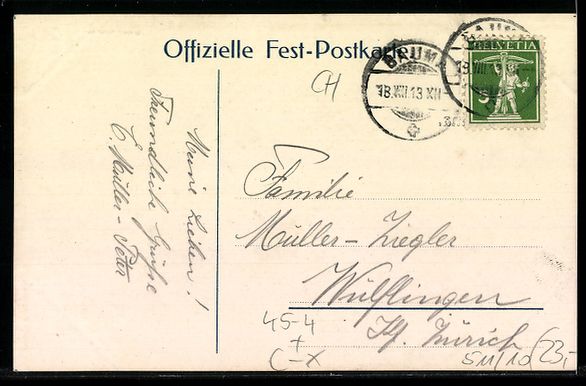 Offizielle Fest-Postkarte
BAUMA
18.VIII.13 XII
BAUMA
HELVETIA
5
CH
Meine Lieben!
Freundliche Grüße
E. Müller-Peter
Familie
Müller-Ziegler
Wülflingen
Kt. Zürich
45-4
+
C-X
S11/10 (23,-